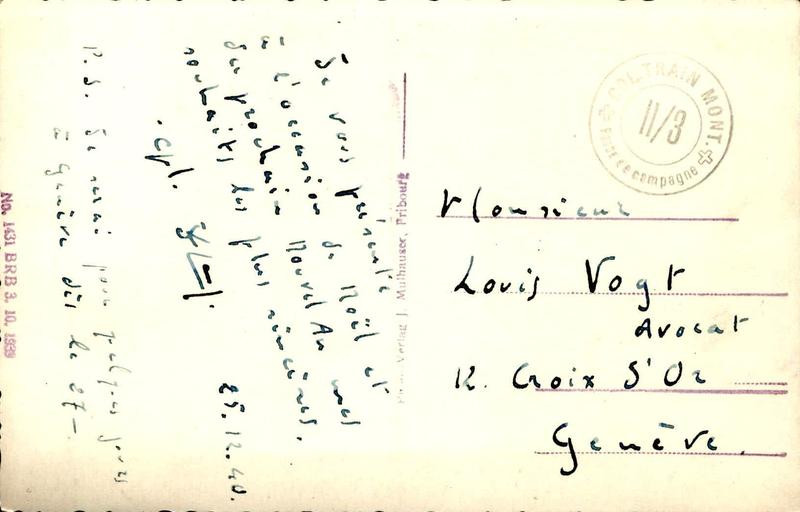 Je vous présente
à l'occasion de Noël et
du prochain Nouvel An mes
souhaits les plus sincères.
Cpl.
25.12.40.
P.S. Je serai pour quelques jours
à Genève dès le 27-
No. 1431 BRB 3. 10. 1939
Verlag J. Mulhauser, Fribourg
COL. TRAIN MONT.
II/3
Poste de campagne
Monsieur
Louis Vogt
Avocat
12. Croix d'Or
Genève.